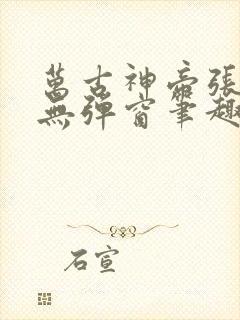 萬古神帝張
無彈窗筆趣
石宣